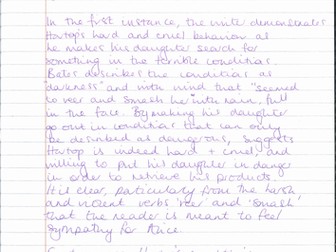 In the first instance, the writer demonstrates
Hartop's hard and cruel behavior as
he makes his daughter search for
something in the terrible conditions.
Bates describes the conditions as
darkness" and with wind that "seemed
to veer and smash he with rain, full
in the face. By making his daughter
go out in conditions that can only
be described as dangerous, suggests
Hartop is indeed hard + cruel and
willing to put his daughter in danger
in order to retrieve his products.
It is clear, particularly from the harsh
and violent verbs 'veer' and 'smash'
that the reader is meant to feel
sympathy for Alice.